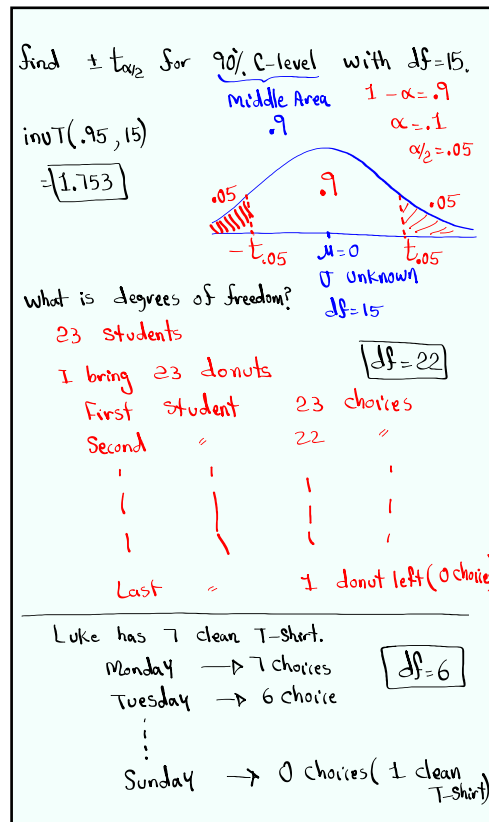 find ± tα/2 for 90% C-level with df=15.
Middle Area
.9
1 - α = .9
α = .1
α/2 = .05
invT(.95, 15)
= 1.753
.05 .9 .05
-t.05 μ=0 t.05
σ unknown
df=15
What is degrees of freedom?
23 students
df=22
I bring 23 donuts
First student 23 choices
Second " 22 "
Last " 1 donut left (0 choice)
Luke has 7 clean T-Shirt.
Monday → 7 choices
df=6
Tuesday → 6 choice
Sunday → 0 choices ( 1 clean
T-Shirt)